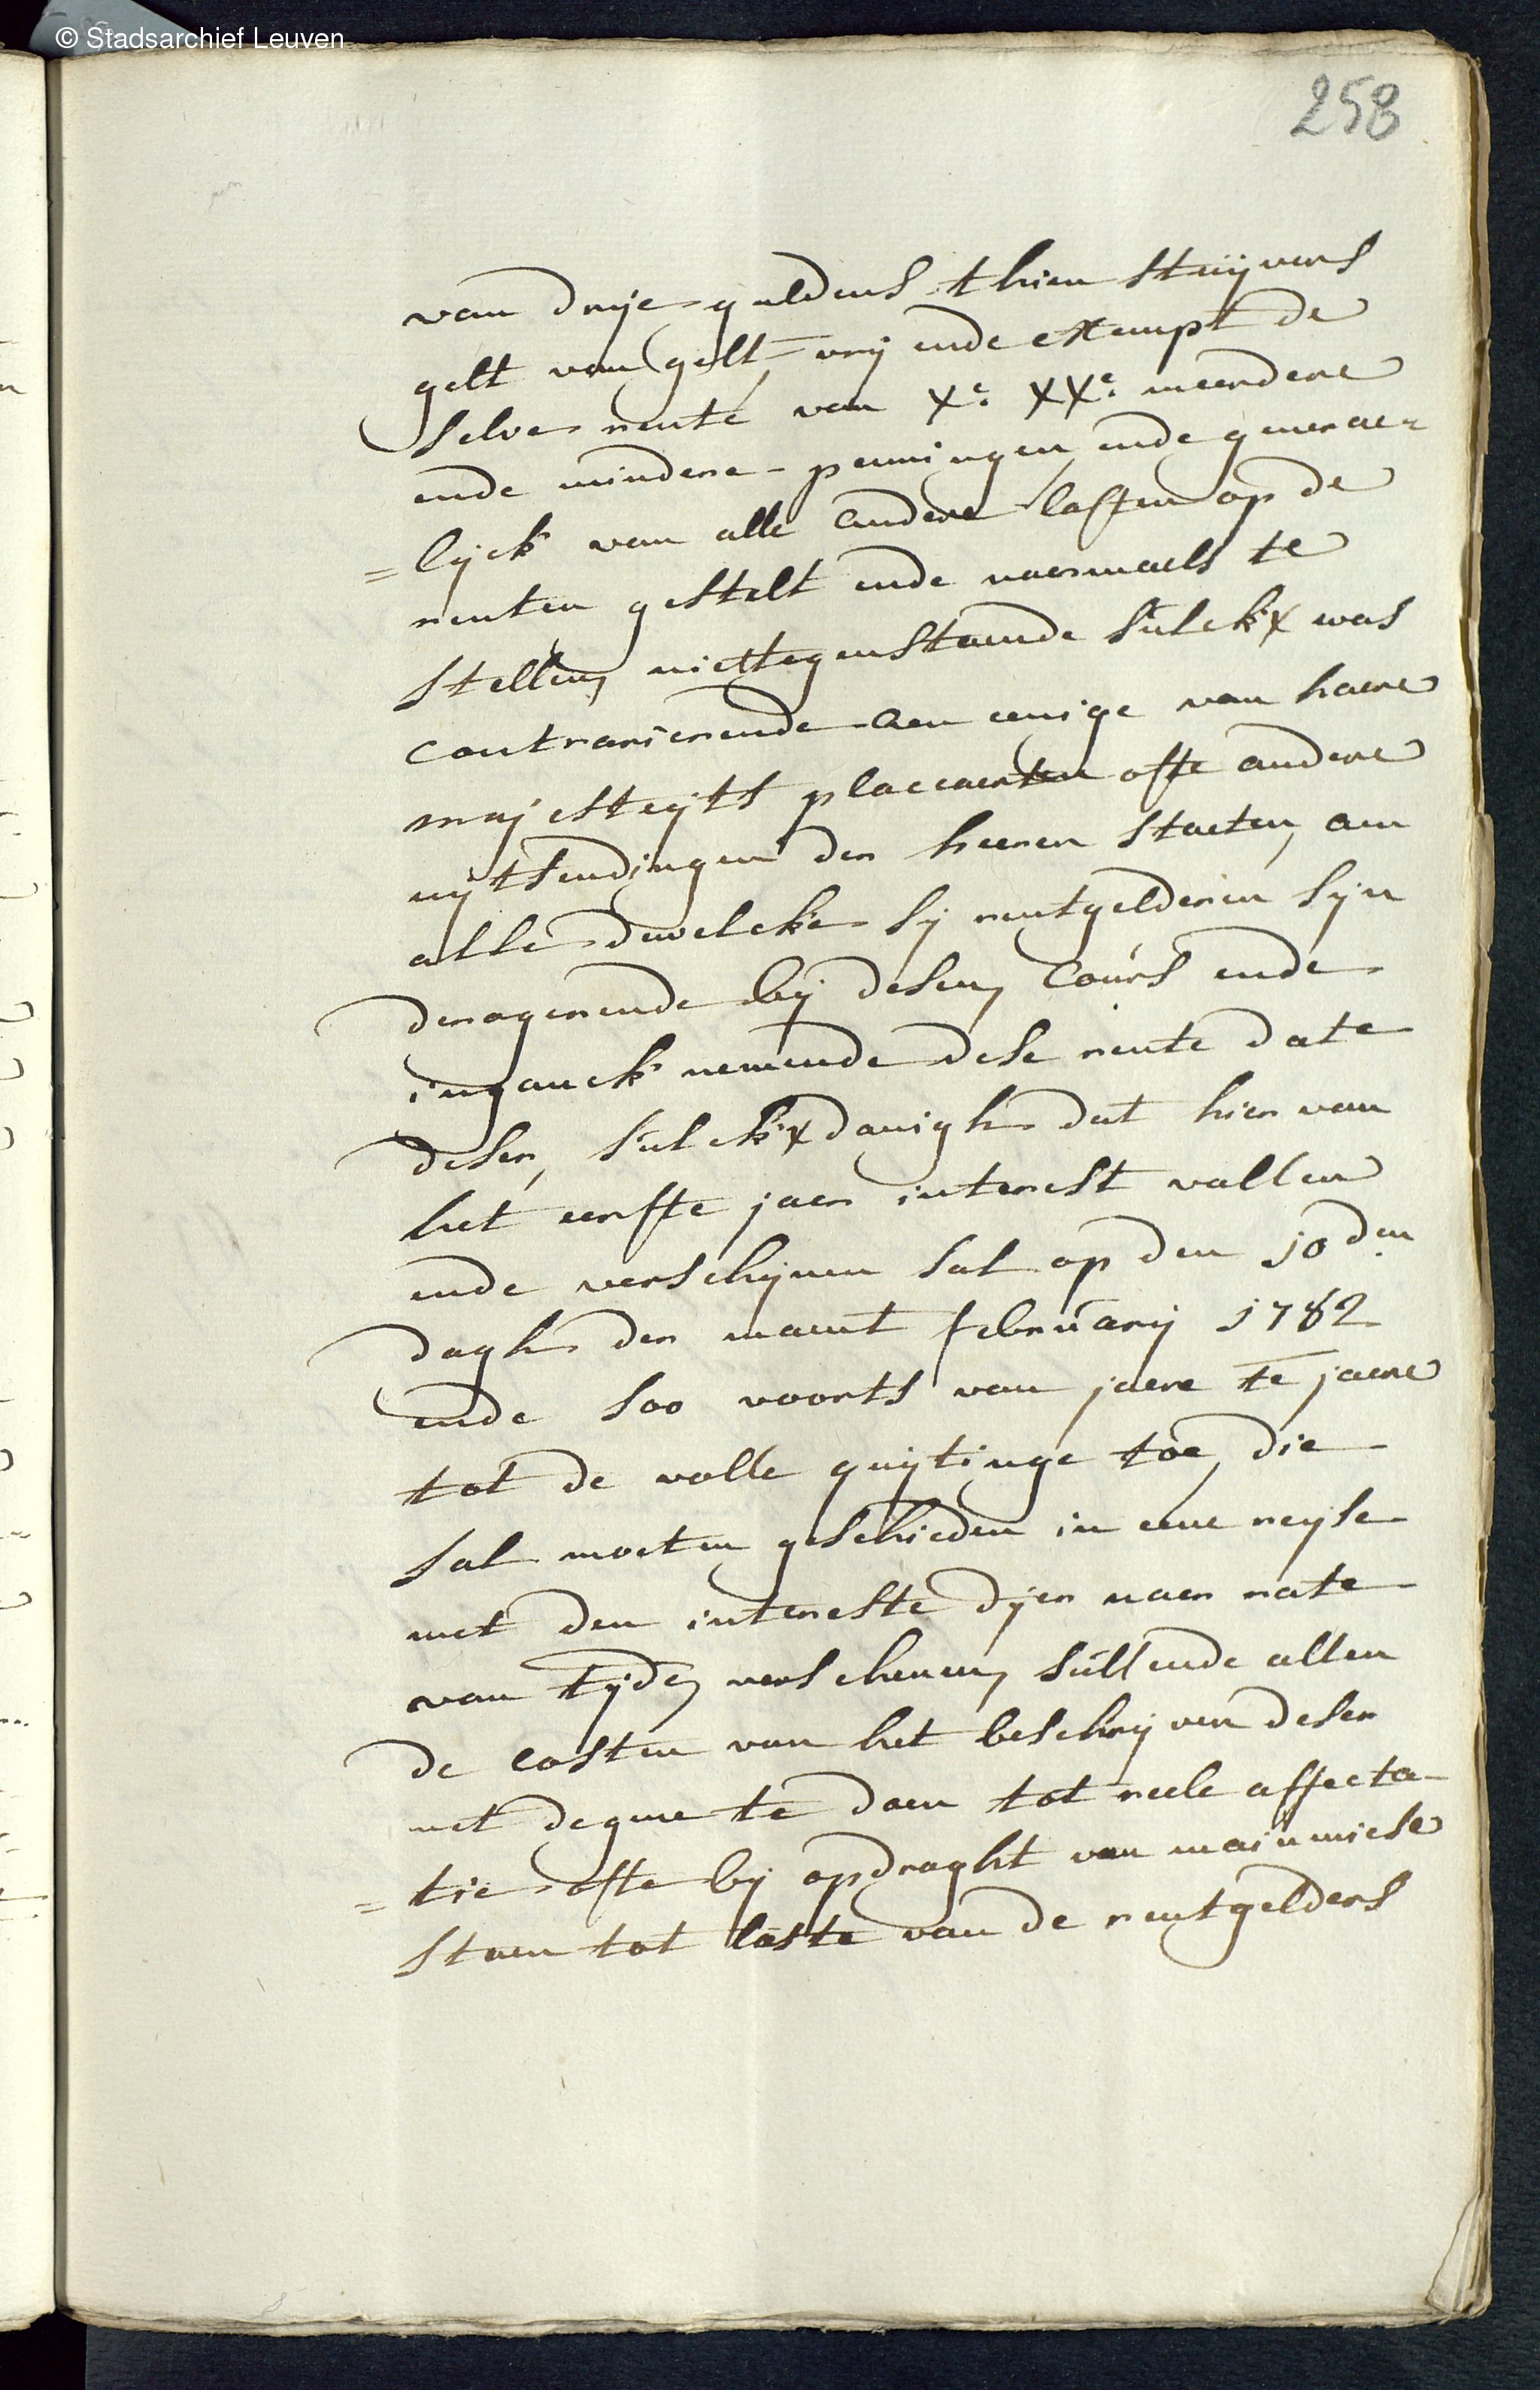 © Stadsarchief Leuven
258
van drije guldens thien stuijvers
gelt van gelt, vrij ende exempt de
selve rente van Xe. XXe. meerdere
ende mindere penningen ende generae=
=lyck van alle andere lasten op de
renten gestelt ende naermaels te
stellen, niettegenstaende sulckx was
contrarierende aen eenige van haere
majesteyts placcaerten ofte andere
uytsendingen der heeren staeten, aen
alle dewelcke sij rentgelderen sijn
derogerende bij desen, cours ende
inganck nemende dese rente date
deser, sulckxdanigh dat hier van
het eerste jaer interest vallen
ende verschijnen sal op den 10den
dagh der maent februarij 1782
ende soo voorts van jaere te jaere
tot de volle quijtinge toe, die
sal moeten geschieden in eene reyse
met den intereste dijer naer rate
van tijde, verschenen, sullende allen
de costen van het beschrijven deser
met degene te doen tot reele affecta-
=tie ofte bij opdraght van mainmiese
staen tot laste van de rentgelders